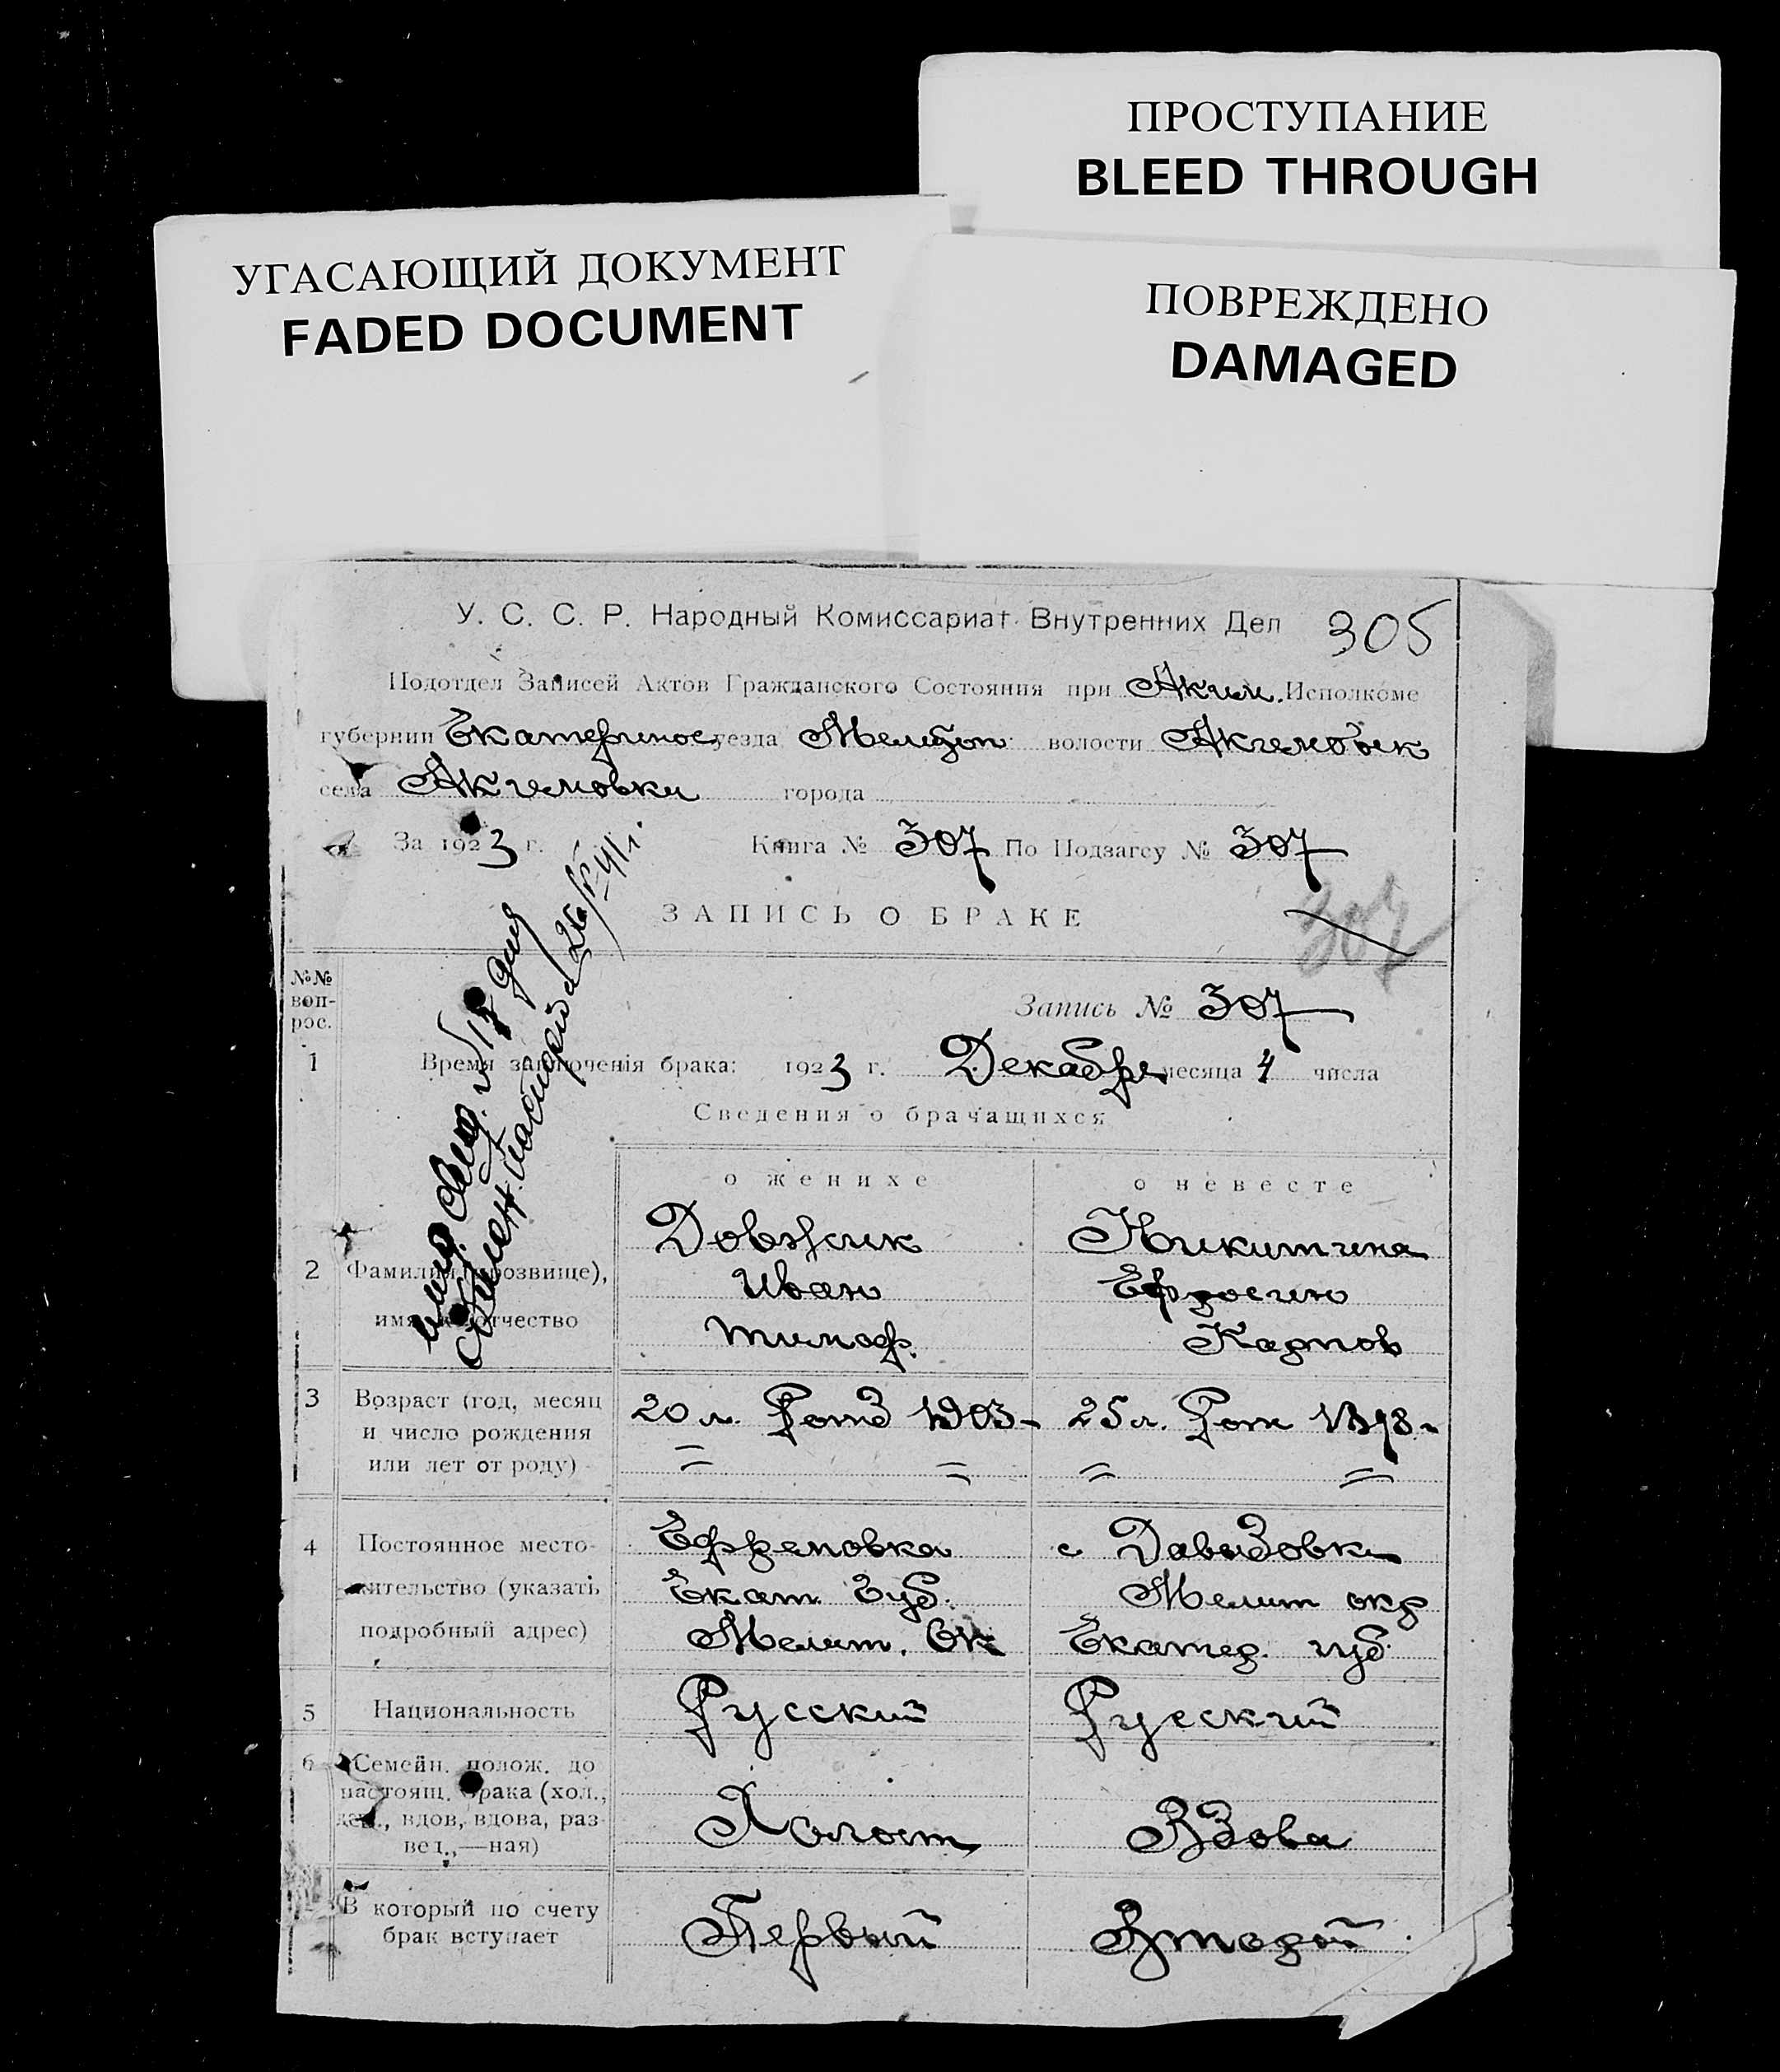 ПРОСТУПАНИЕ
BLEED THROUGH
УГАСАЮЩИЙ ДОКУМЕНТ
FADED DOCUMENT
ПОВРЕЖДЕНО
DAMAGED
У. С. С. Р. Народный Комиссариат Внутренних Дел 305
Подотдел Записей Актов Гражданского Состояния при Аким. Исполкоме
губернии Екатеринос уезда Мелитоп волости Акимовск
села Акимовки города
За 1923 г. Книга № 307 По Подзагсу № 307
ЗАПИСЬ О БРАКЕ
307
№№ вопрос.
Запись № 307
1 Время заключенія брака: 1923 г. Декабре месяца 4 числа
Сведения о брачащихся
о женихе о невесте
Довжик Никитина
2 Фамилия (прозвище), Иван Ефросин
имя и отчество Тимоф. Карпов
3 Возраст (год, месяц 20 л. Ротд 1903 25 л. Рот 1898
и число рождения
или лет от роду) = = = =
4 Постоянное место- Ефремовка с Давидовки
жительство (указать Екат Губ. Мелит окр
подробный адрес) Мелит. Ок Екатер. губ.
5 Национальность Русский Русский
6 Семейн. полож. до
настоящ. брака (хол.,
дев., вдов, вдова, раз Холост Вдова
вед.,—ная)
В который по счету Первый Второй
брак вступает